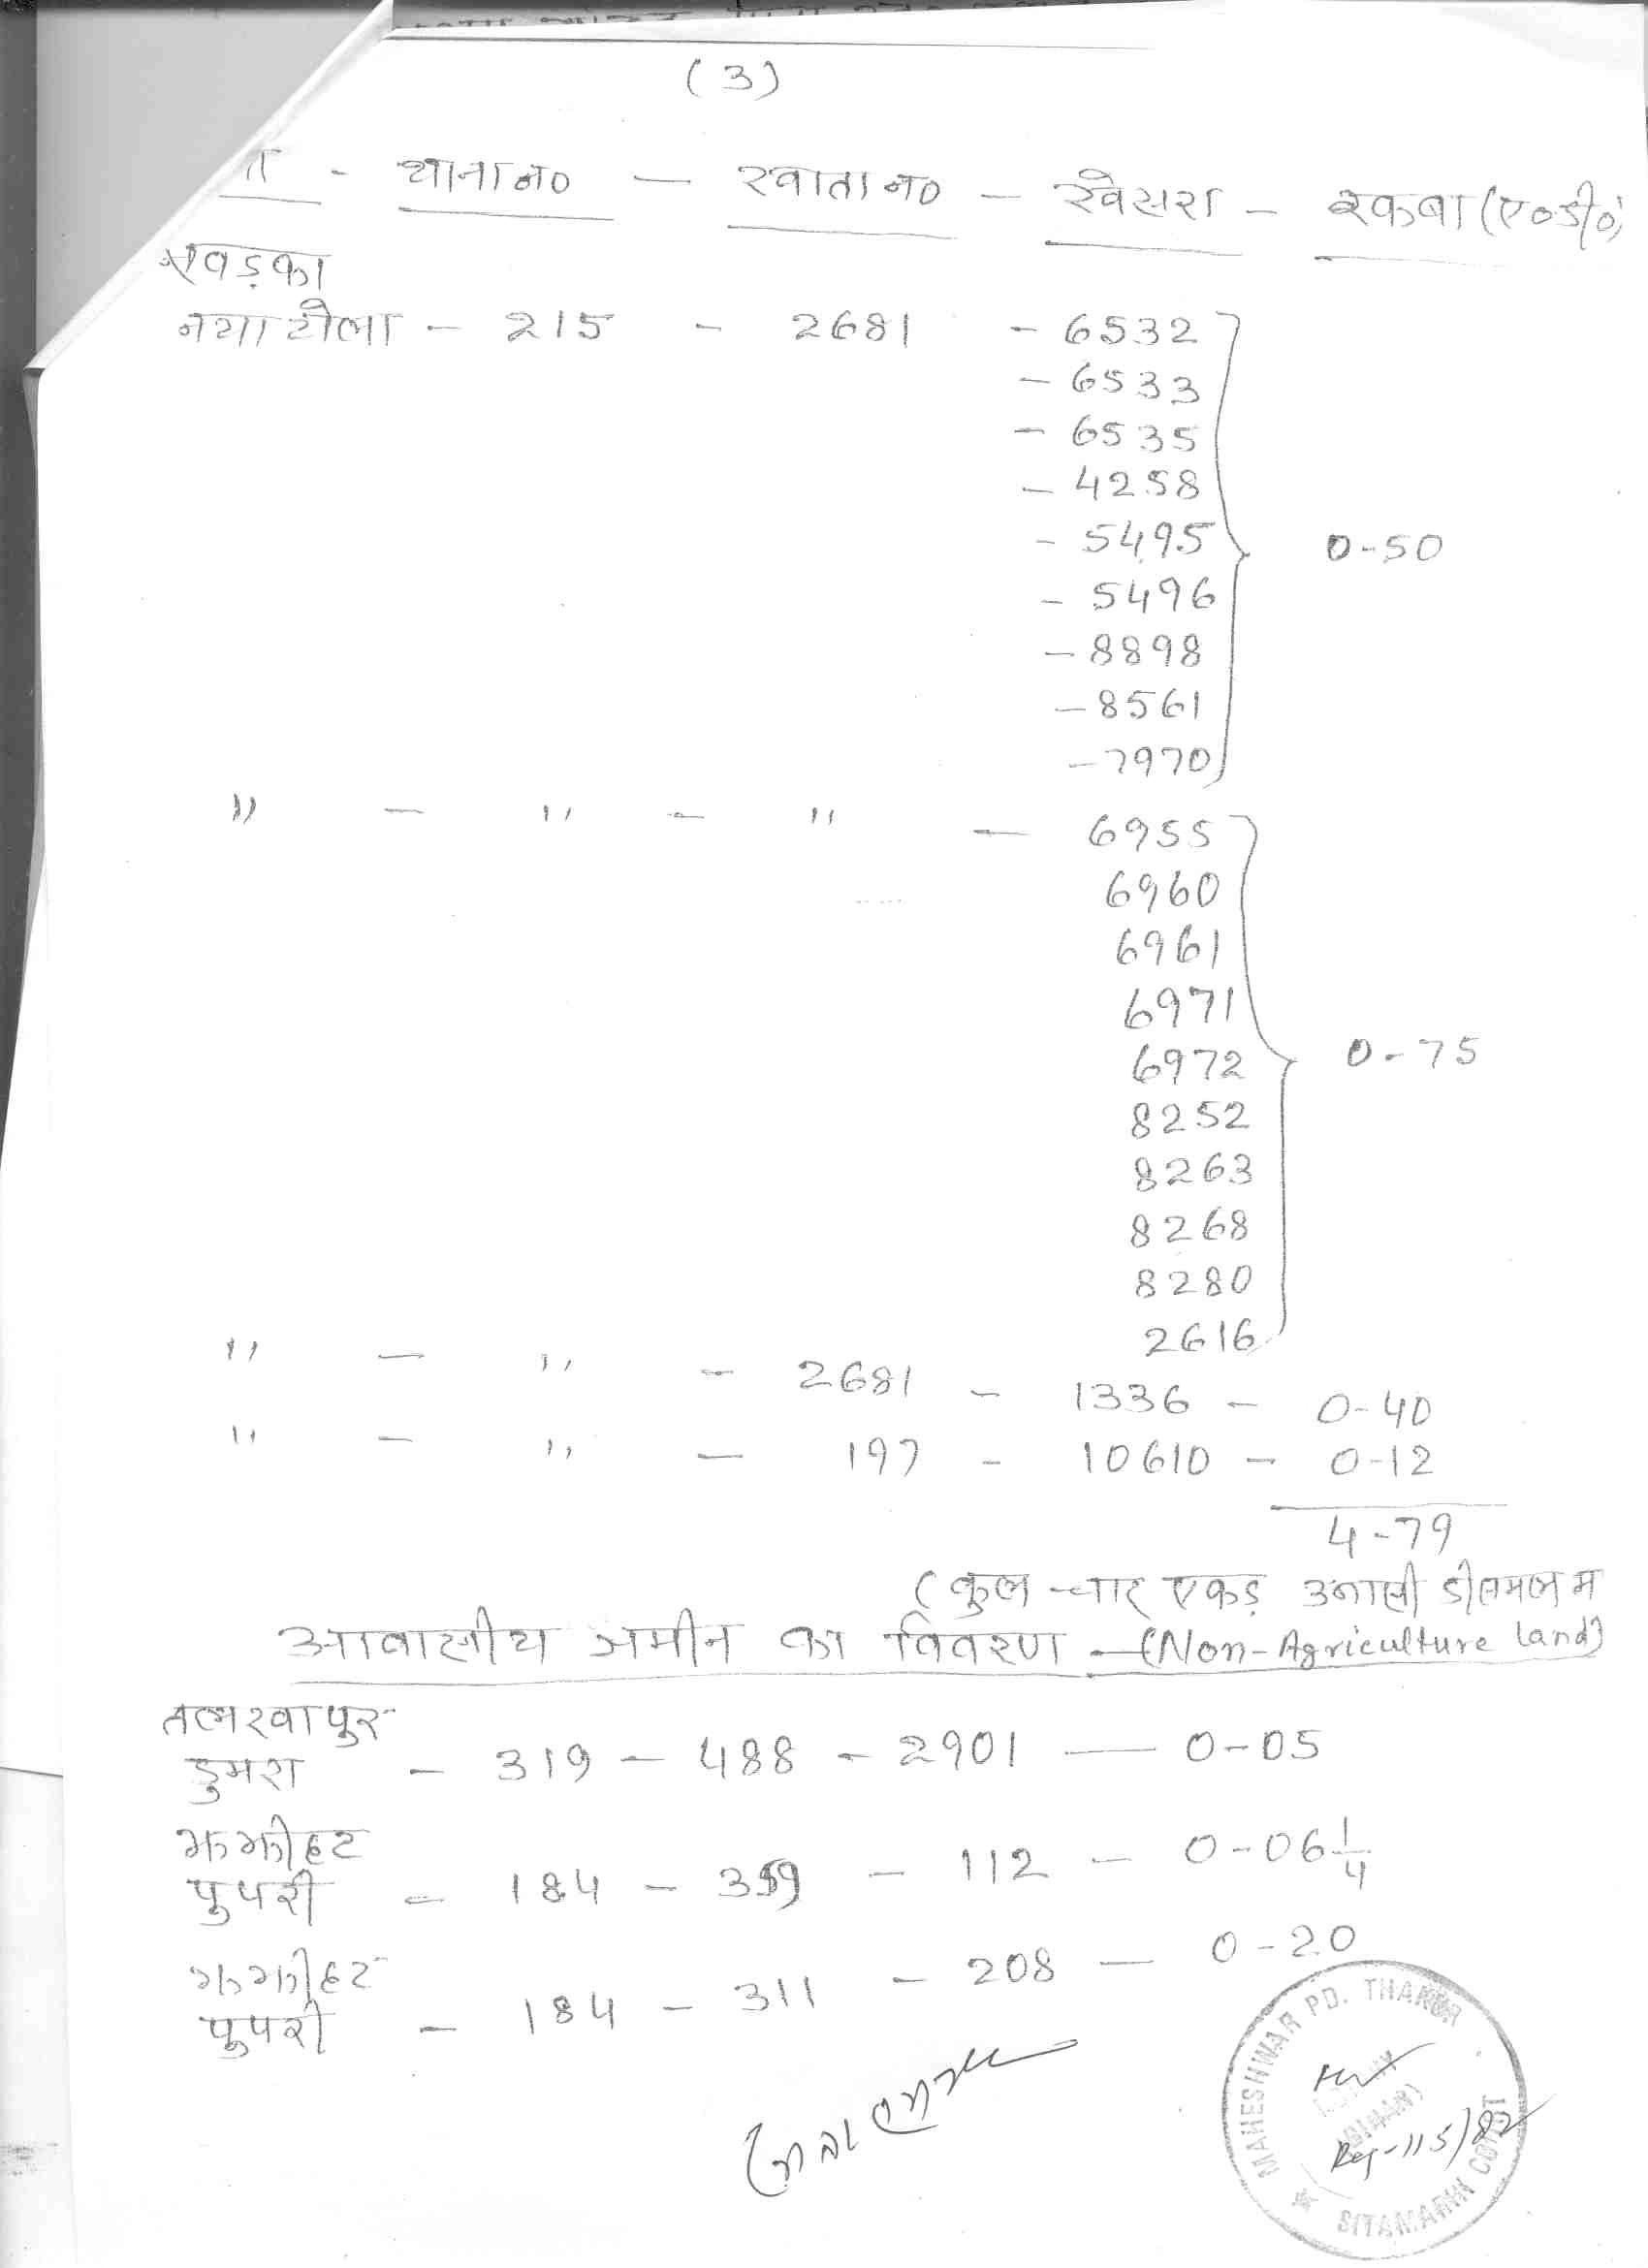 (3)
- थाना न० — खाता न० - खेसरा - रकबा (ए०डी०)
खड़का
नया टोला - 215 - 2681 - 6532
- 6533
- 6535
- 4258
- 5495 0-50
- 5496
- 8898
- 8561
- 7970
" - " - " - 6955
6960
6961
6971
6972 0-75
8252
8263
8268
8280
2616
" - " - 2681 - 1336 - 0-40
" - " - 197 - 10610 - 0-12
4-79
(कुल चार एकड़ उनासी डीसमल म
आवासीय जमीन का विवरण - (Non-Agriculture land)
तलखापुर
डुमरा - 319 - 488 - 2901 — 0-05
झझीहट
पुपरी - 184 - 359 - 112 - 0-06 1/4
झझीहट
पुपरी - 184 - 311 - 208 - 0-20
MAHESHWAR PD. THAKUR
(BIHAR)
Reg-115/82
SITAMARHI COURT